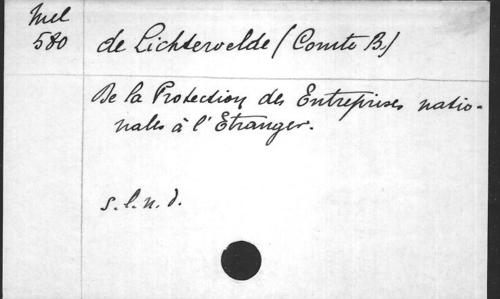 Mel
580
de Lichtervelde (Comte B.)
De la Protection des Entreprises natio-
nales à l'Etranger.
s.l.n.d.